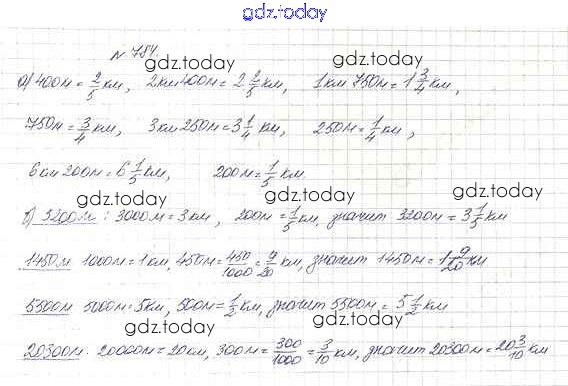 gdz.today
№ 784.
gdz.today gdz.today
а) 400м = 2/5 км, 2км 400м = 2 2/5 км, 1км 750м = 1 3/4 км,
750м = 3/4 км, 3км 250м = 3 1/4 км, 250м = 1/4 км,
6км 200м = 6 1/5 км, 200м = 1/5 км.
gdz.today gdz.today gdz.today
б) 3200м : 3000м = 3км, 200м = 1/5 км, значит 3200м = 3 1/5 км
1450м 1000м = 1км, 450м = 450/1000 = 9/20 км, значит 1450м = 1 9/20 км
5500м 5000м = 5км, 500м = 1/2 км, значит 5500м = 5 1/2 км
gdz.today gdz.today
20300м. 20000м = 20км, 300м = 300/1000 = 3/10 км, значит 20300м = 20 3/10 км